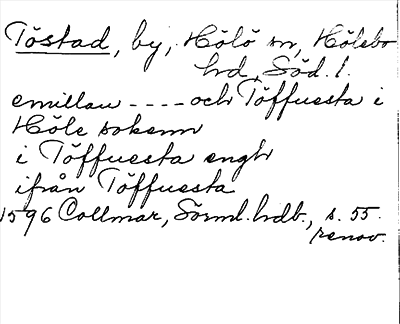 Töstad, by, Hölö sn, Hölebo
hd, Söd. l.
emillan ---- och Töffuesta i
Höle sokenn
i Töffuesta engh
ifrån Töffuesta
1596 Collmar, Sörml. hdb., s. 55.
renov.